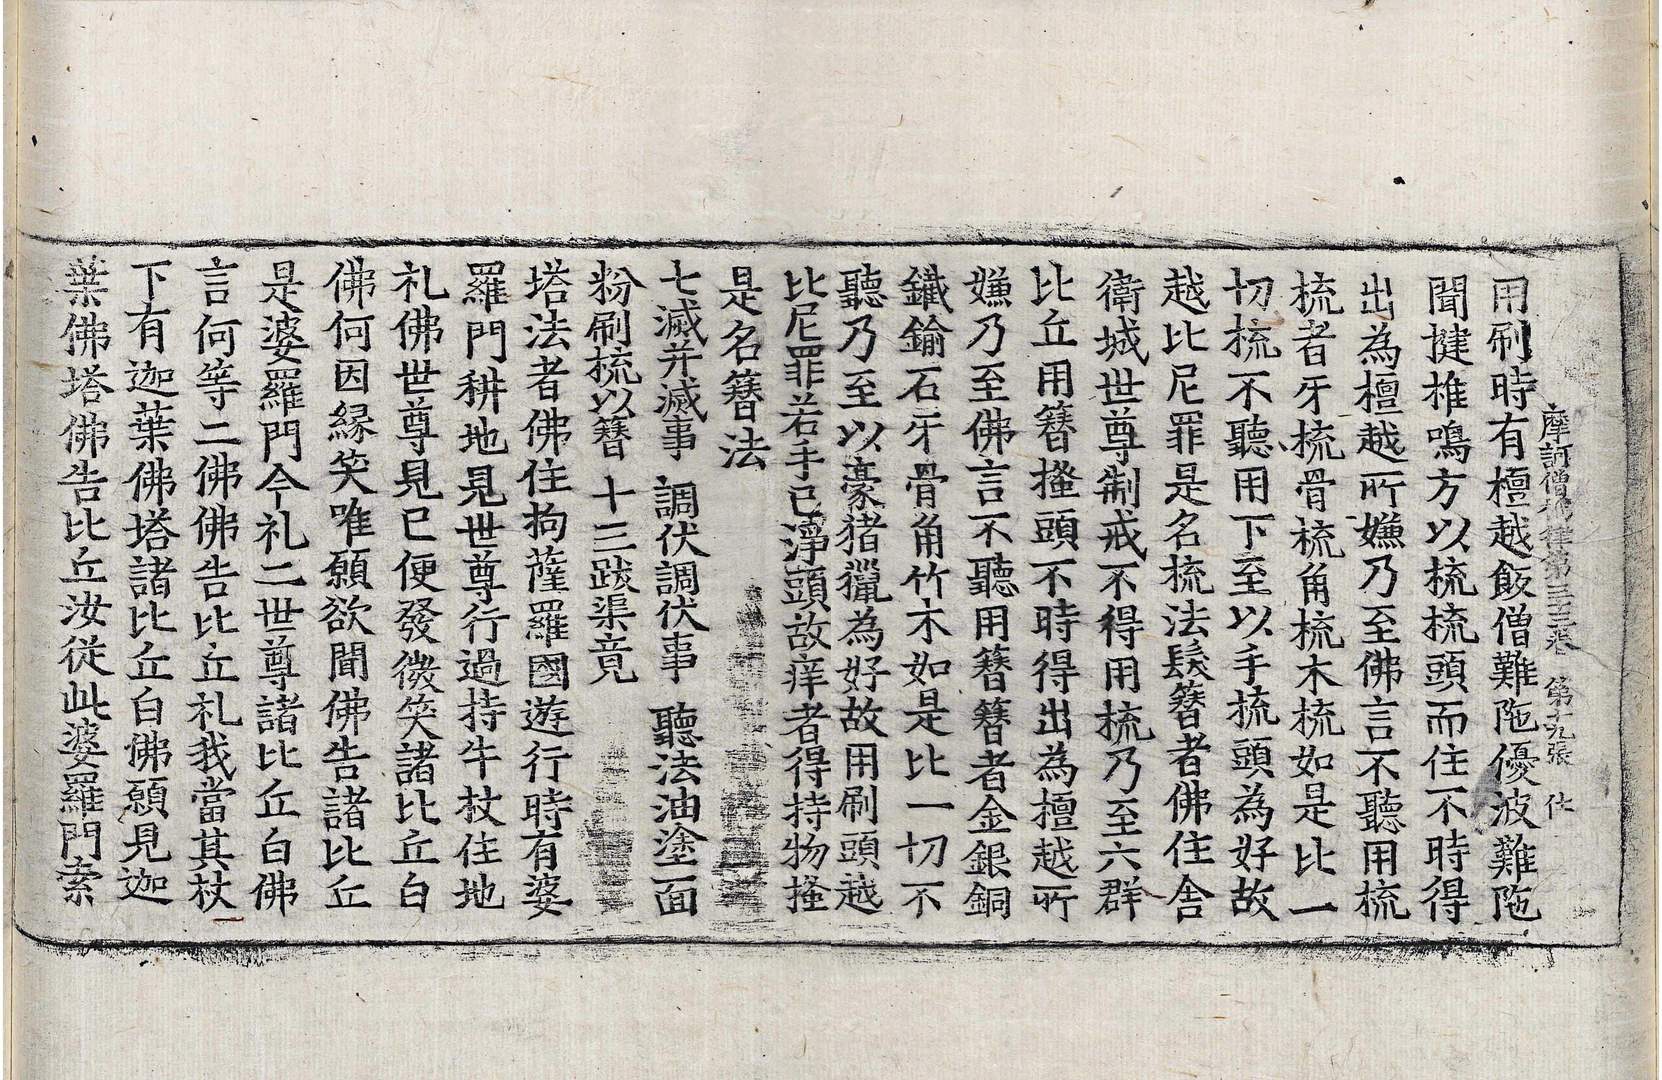 摩訶僧祇律第三十三卷　第十九張　仕
用刷時有檀越飯僧難陁優波難陁
聞揵椎鳴方以梳梳頭而住不時得
出為檀越所嫌乃至佛言不聽用梳
梳者牙梳骨梳角梳木梳如是比一
切梳不聽用下至以手梳頭為好故
越比尼罪是名梳法鬀簪者佛住舍
衛城世尊制戒不得用梳乃至六群
比丘用簪搔頭不時得出為檀越所
嫌乃至佛言不聽用簪簪者金銀銅
鐵鍮石牙骨角竹木如是比一切不
聽乃至以豪猪㺢為好故用刷頭越
比尼罪若手已淨頭故痒者得持物搔
是名簪法
七滅并滅事　調伏調伏事　聽法油塗面
粉刷梳以簪　十三跋渠竟
塔法者佛住拘薩羅國遊行時有婆
羅門耕地見世尊行過持牛杖住地
礼佛世尊見已便發微笑諸比丘白
佛何因緣笑唯願欲聞佛告諸比丘
是婆羅門今礼二世尊諸比丘白佛
言何等二佛佛告比丘礼我當其杖
下有迦葉佛塔諸比丘白佛願見迦
葉佛塔佛告比丘汝從此婆羅門索